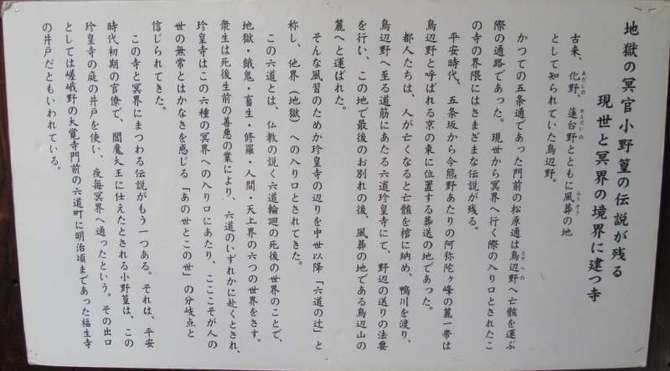 地獄の冥官小野篁の伝説が残る
現世と冥界の境界に建つ寺
古来、化野、蓮台野とともに風葬の地
として知られていた鳥辺野。
かつての五条通であった門前の松原通は鳥辺野へ亡骸を運ぶ
際の通路であった。現世から冥界へ行く際の入り口とされたこ
の寺の界隈にはさまざまな伝説が残る。
平安時代、五条坂から今熊野あたりの阿弥陀ヶ峰の麓一帯は
鳥辺野と呼ばれる京の東に位置する葬送の地であった。
都人たちは、人が亡くなると亡骸を棺に納め、鴨川を渡り、
鳥辺野へ至る道筋にあたる六道珍皇寺にて、野辺の送りの法要
を行い、この地で最後のお別れの後、風葬の地である鳥辺山の
麓へと運ばれた。
そんな風習のためか珍皇寺の辺りを中世以降「六道の辻」と
称し、他界（地獄）への入り口とされてきた。
この六道とは、仏教の説く六道輪廻の死後の世界のことで、
地獄・餓鬼・畜生・修羅・人間・天上界の六つの世界をさす。
衆生は死後生前の善悪の業により、六道のいずれかに赴くとされ、
珍皇寺はこの六種の冥界への入り口にあたり、こここそが人の
世の無常とはかなさを感じる「あの世とこの世」の分岐点と
信じられてきた。
この寺と冥界にまつわる伝説がもう一つある。それは、平安
時代初期の官僚で、閻魔大王に仕えたとされる小野篁は、この
珍皇寺の庭の井戸を使い、夜毎冥界へ通ったという。その出口
としては嵯峨野の大覚寺門前の六道町に明治頃まであった福生寺
の井戸だともいわれている。